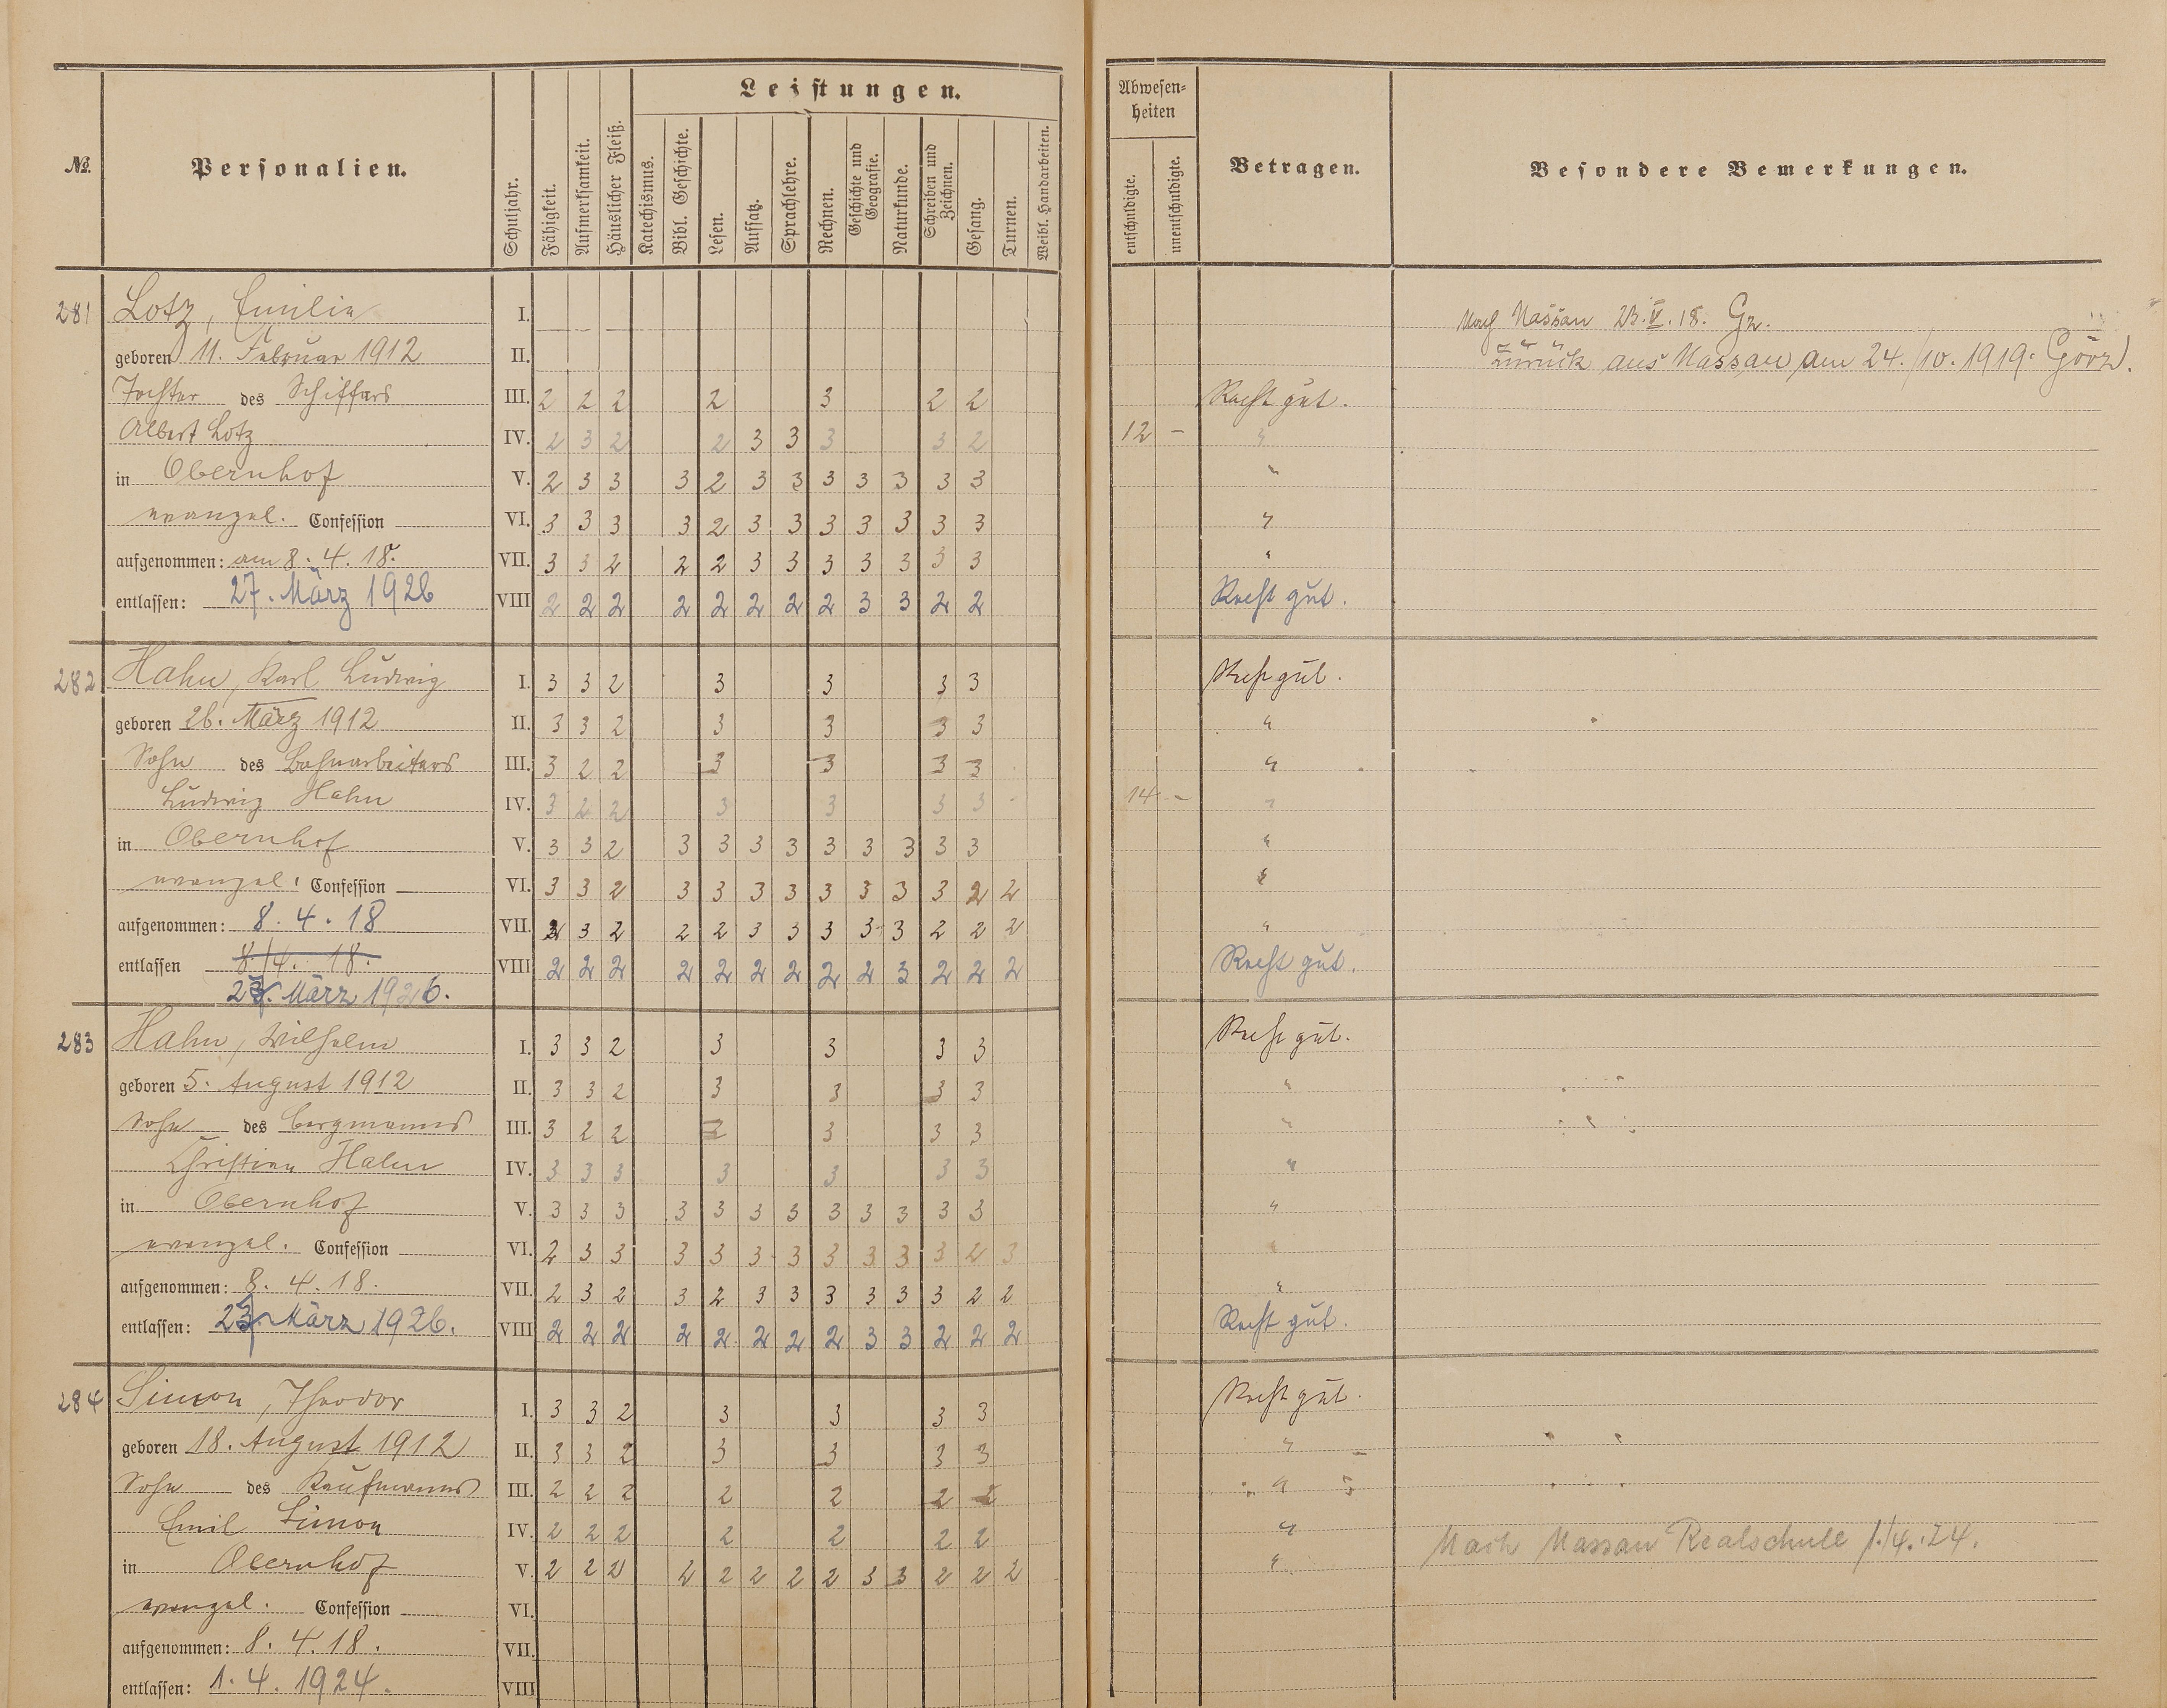 №.
Personalien.
Schuljahr.
Fähigkeit.
Aufmerksamkeit.
Häuslicher Fleiß.
Leistungen.
Katechismus.
Bibl. Geschichte.
Lesen.
Aufsatz.
Sprachlehre.
Rechnen.
Geschichte und Geografie.
Naturkunde.
Schreiben und Zeichnen.
Gesang.
Turnen.
Weibl. Handarbeiten.
Abwesen-
heiten
entschuldigte.
unentschuldigte.
Betragen.
Besondere Bemerkungen.
281 Lotz, Emilie I. Nach Nassau 23.V.18. Gz.
geboren 11. Februar 1912 II. Zurück aus Nassau am 24./10.1919.
Tochter des Schiffers III. 2 2 2 2 3 2 2 Recht gut.
Albert Lotz IV. 2 3 2 2 3 3 3 3 2 12 – "
in Obernhof V. 2 3 3 3 2 3 3 3 3 3 3 3 "
evangel. Confession VI. 3 3 3 3 2 3 3 3 3 3 3 3 "
aufgenommen: am 8. 4. 18. VII. 3 3 2 2 2 3 3 3 3 3 3 3 "
entlassen: 27. März 1926 VIII 2 2 2 2 2 2 2 2 3 3 2 2 Recht gut.
282 Hahn, Karl Ludwig I. 3 3 2 3 3 3 3 Recht gut.
geboren 26. März 1912 II. 3 3 2 3 3 3 3 "
Sohn des Bahnarbeiters III. 3 2 2 3 3 3 3 "
Ludwig Hahn IV. 3 2 2 3 3 3 3 14 – "
in Obernhof V. 3 3 2 3 3 3 3 3 3 3 3 3 "
evangel. Confession VI. 3 3 2 3 3 3 3 3 3 3 3 2 2 "
aufgenommen: 8. 4. 18 VII. 2 3 2 2 2 3 3 3 3 3 2 2 2 "
entlassen 8./4. 18. VIII 2 2 2 2 2 2 2 2 2 3 2 2 2 Recht gut.
März 1926.
283 Hahn, Wilhelm I. 3 3 2 3 3 3 3 Recht gut.
geboren 5. August 1912 II. 3 3 2 3 3 3 3 "
Sohn des Bergmanns III. 3 2 2 3 3 3 3 "
Christian Hahn IV. 3 3 3 3 3 3 3 "
in Obernhof V. 3 3 3 3 3 3 3 3 3 3 3 3 "
evangel. Confession VI. 2 3 3 3 3 3 3 3 3 3 3 2 3 "
aufgenommen: 8. 4. 18. VII. 2 3 2 3 2 3 3 3 3 3 3 2 2 "
entlassen: März 1926. VIII 2 2 2 2 2 2 2 2 3 3 2 2 2 Recht gut.
284 Simon, Theodor I. 3 3 2 3 3 3 3 Recht gut.
geboren 18. August 1912 II. 3 3 2 3 3 3 3 "
Sohn des Kaufmanns III. 2 2 2 2 2 2 2 "
Emil Simon IV. 2 2 2 2 2 2 2 " Nach Nassau Realschule 1./4.'24.
in Obernhof V. 2 2 2 2 2 2 2 2 3 3 2 2 2 "
evangel. Confession VI.
aufgenommen: 8. 4. 18. VII.
entlassen: 1. 4. 1924. VIII